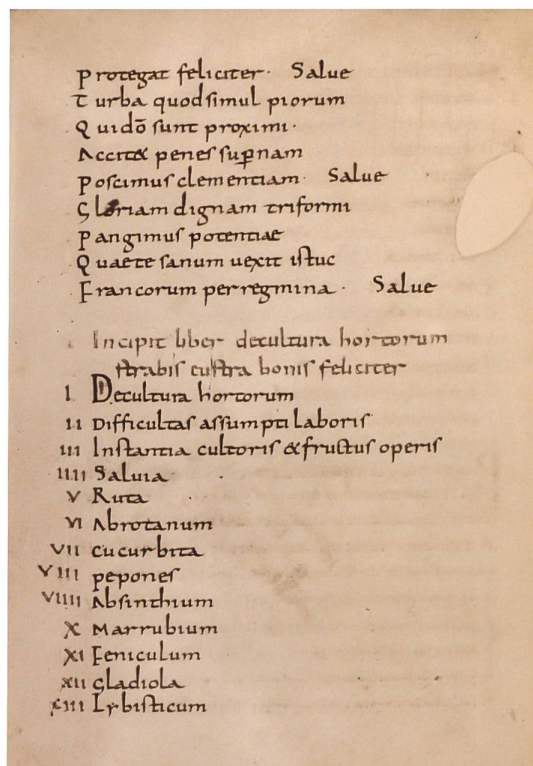 Protegat feliciter· Salue
Turba quod simul piorum
Qui dō sunt proximi·
Accit& penes sup̄nam
Poscimus clementiam· Salue
Gloriam dignam triformi
Pangimus potentiae
Quae te sanum uexit istuc
Francorum per regmina· Salue
Incipit liber de cultura hortorum
strabi feliciter
I De cultura hortorum
II Difficultas assumpti laboris
III Instantia cultoris & fructus operis
IIII Saluia
V Ruta
VI Abrotanum
VII cucurbita
VIII pepones
VIIII Absinthium
X Marrubium
XI Feniculum
XII Gladiola
XIII Lybisticum